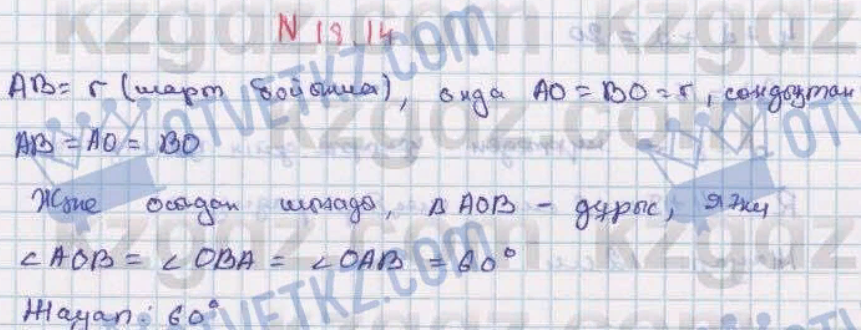 N 18.14
AB = r (шарт бойынша), онда AO = BO = r, сондықтан
AB = AO = BO
Және осыдан шығады, Δ AOB - дұрыс, яғни
∠AOB = ∠OBA = ∠OAB = 60°
Жауап: 60°
kzgdz.com
OTVETKZ.COM